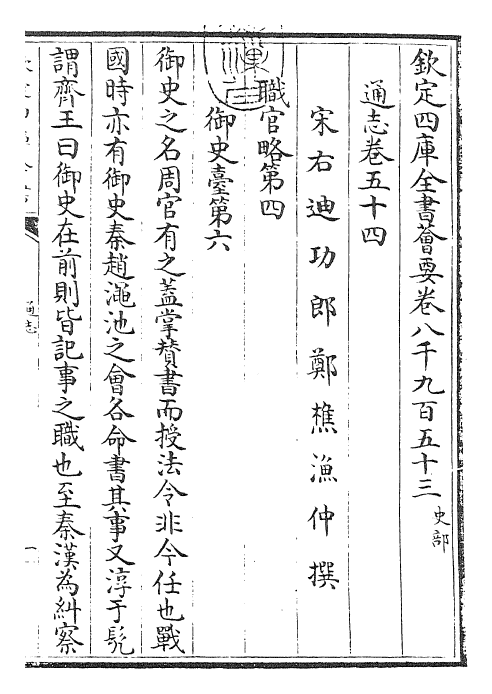 欽定四庫全書薈要卷八千九百五十三 史部
通志卷五十四
宋右迪功郎鄭樵漁仲撰
職官略第四
御史臺第六
御史之名周官有之蓋掌賛書而授法令非今任也戰
國時亦有御史秦趙澠池之會各命書其事又淳于髡
謂齊王曰御史在前則皆記事之職也至秦漢為糾察
通志